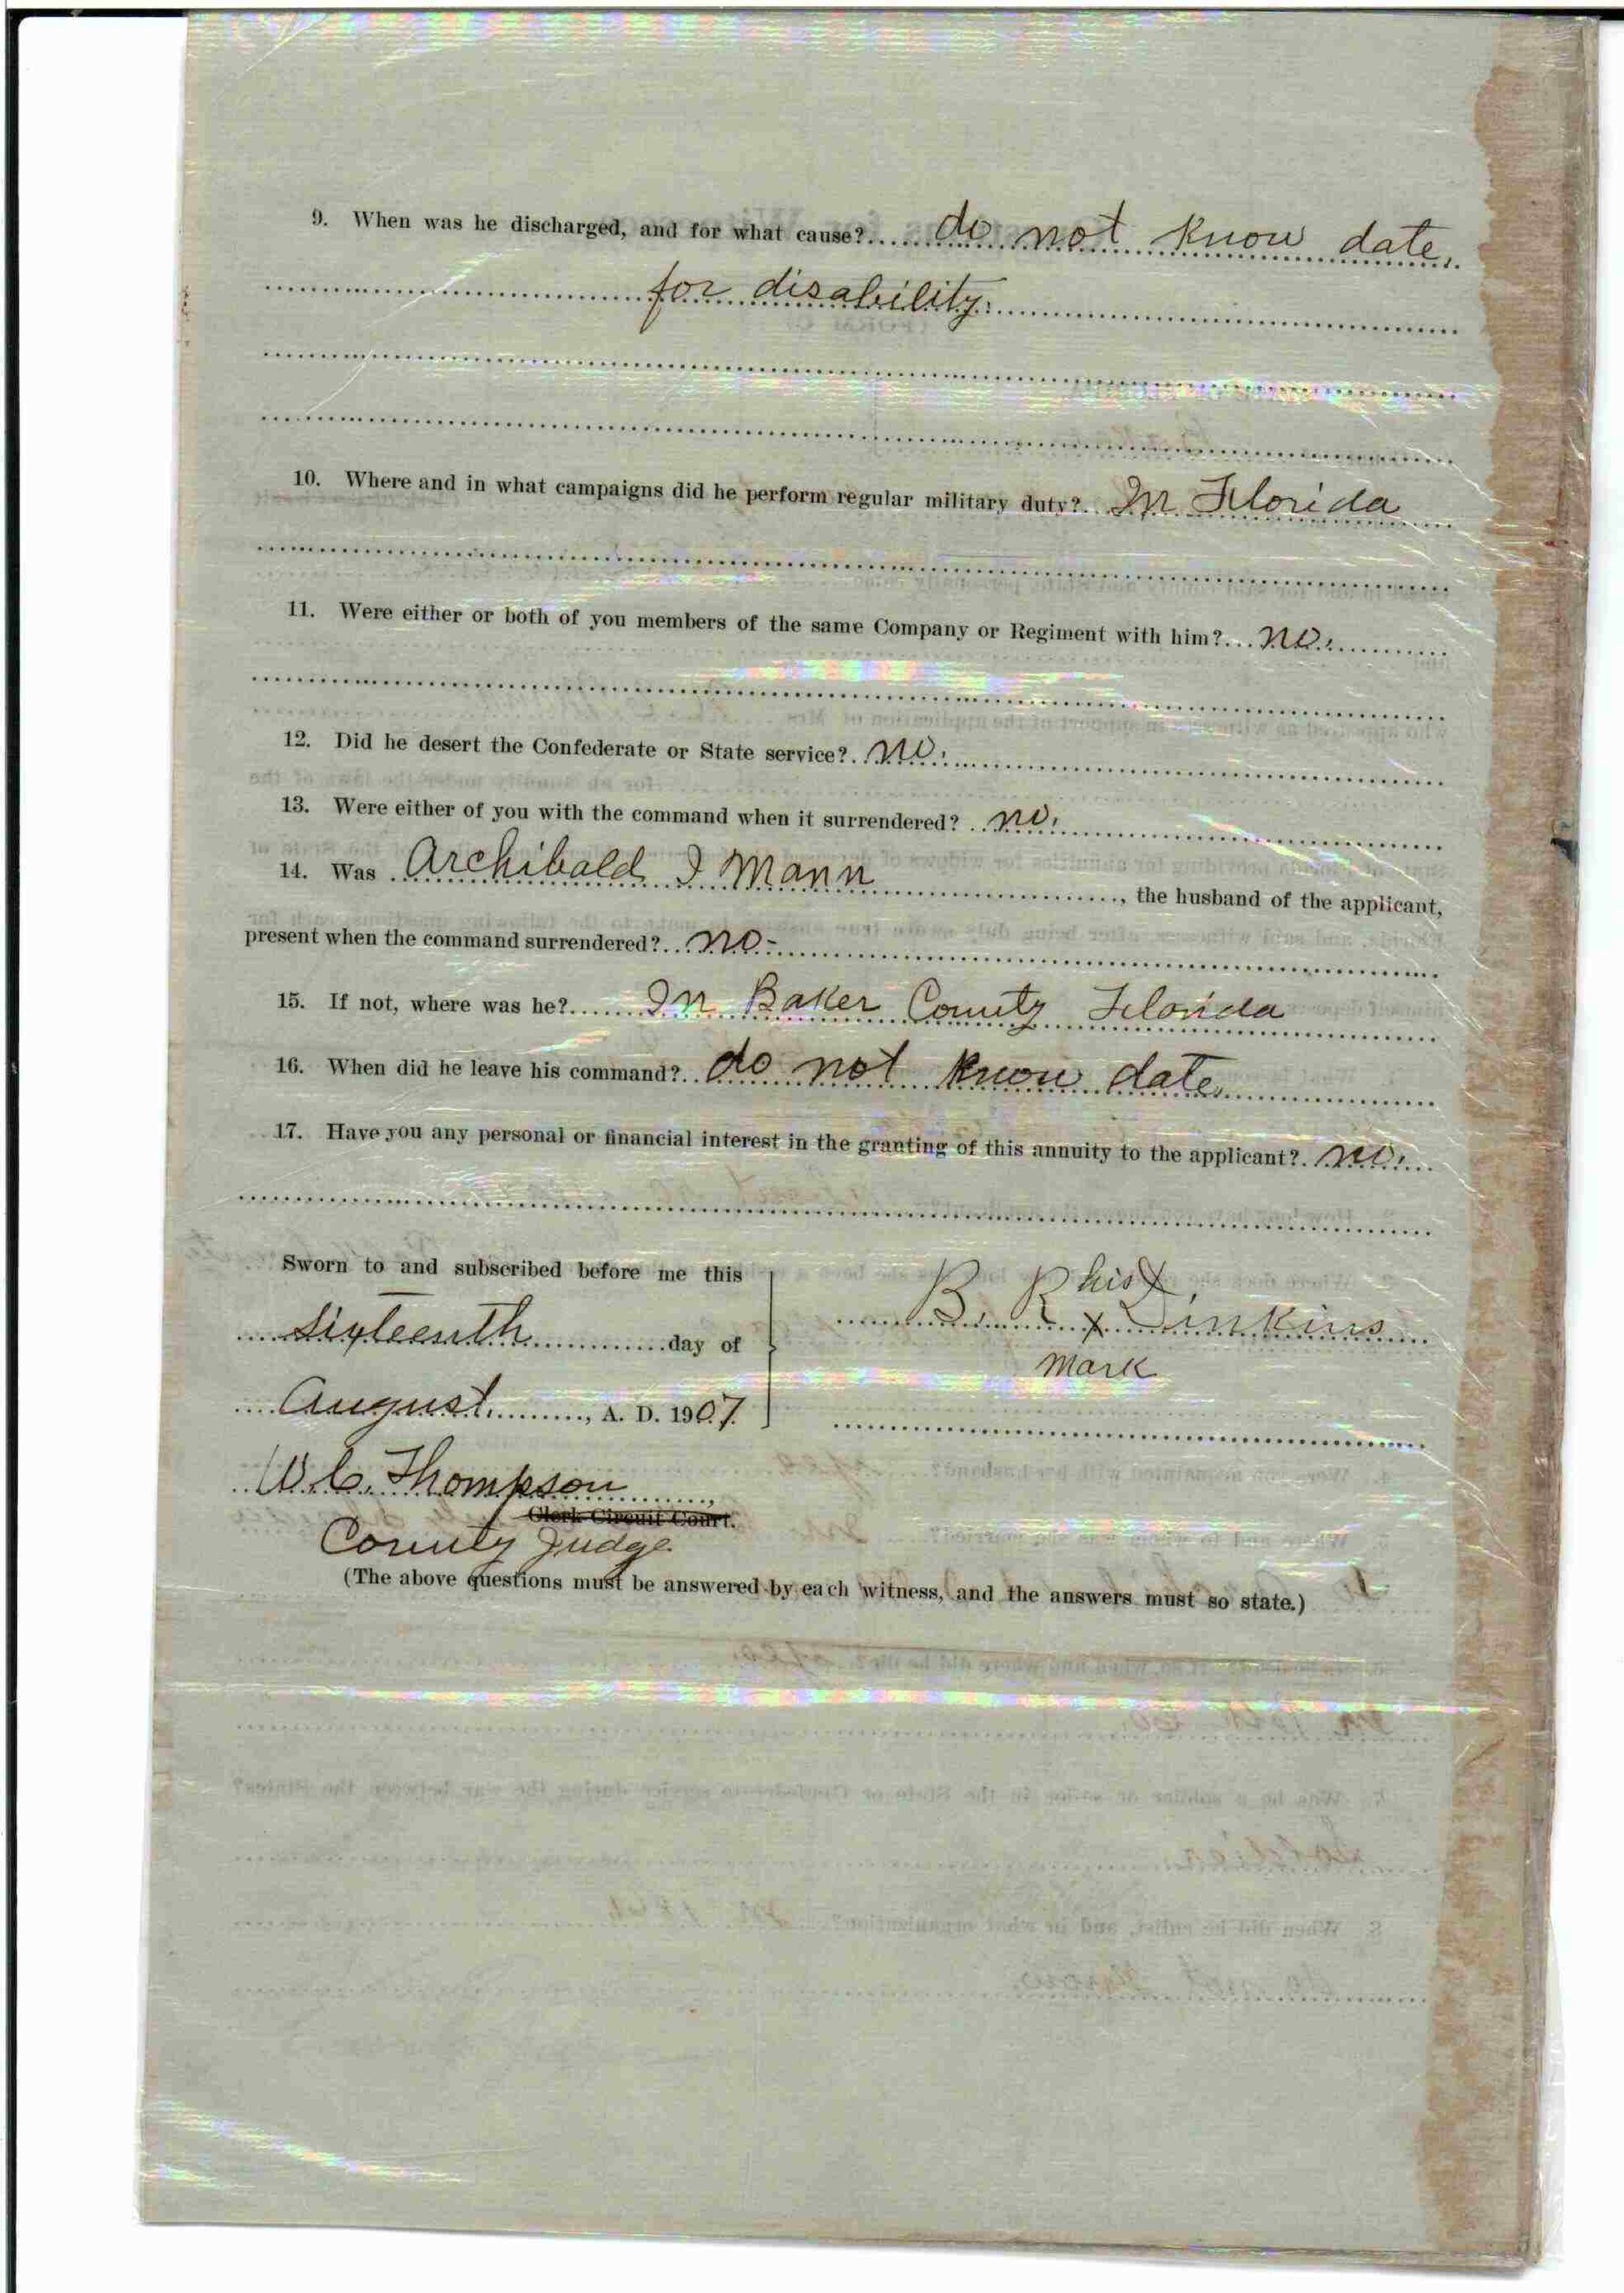 9. When was he discharged, and for what cause? do not know date,
for disability.
10. Where and in what campaigns did he perform regular military duty? In Florida
11. Were either or both of you members of the same Company or Regiment with him? no.
12. Did he desert the Confederate or State service? no.
13. Were either of you with the command when it surrendered? no.
14. Was Archibald I Mann, the husband of the applicant,
present when the command surrendered? no-
15. If not, where was he? In Baker County Florida
16. When did he leave his command? do not know date
17. Have you any personal or financial interest in the granting of this annuity to the applicant? no.
Sworn to and subscribed before me this
sixteenth day of
August, A. D. 1907.
B. R his x Dinkins
mark
W. C. Thompson,
Clerk Circuit Court.
County Judge.
(The above questions must be answered by each witness, and the answers must so state.)